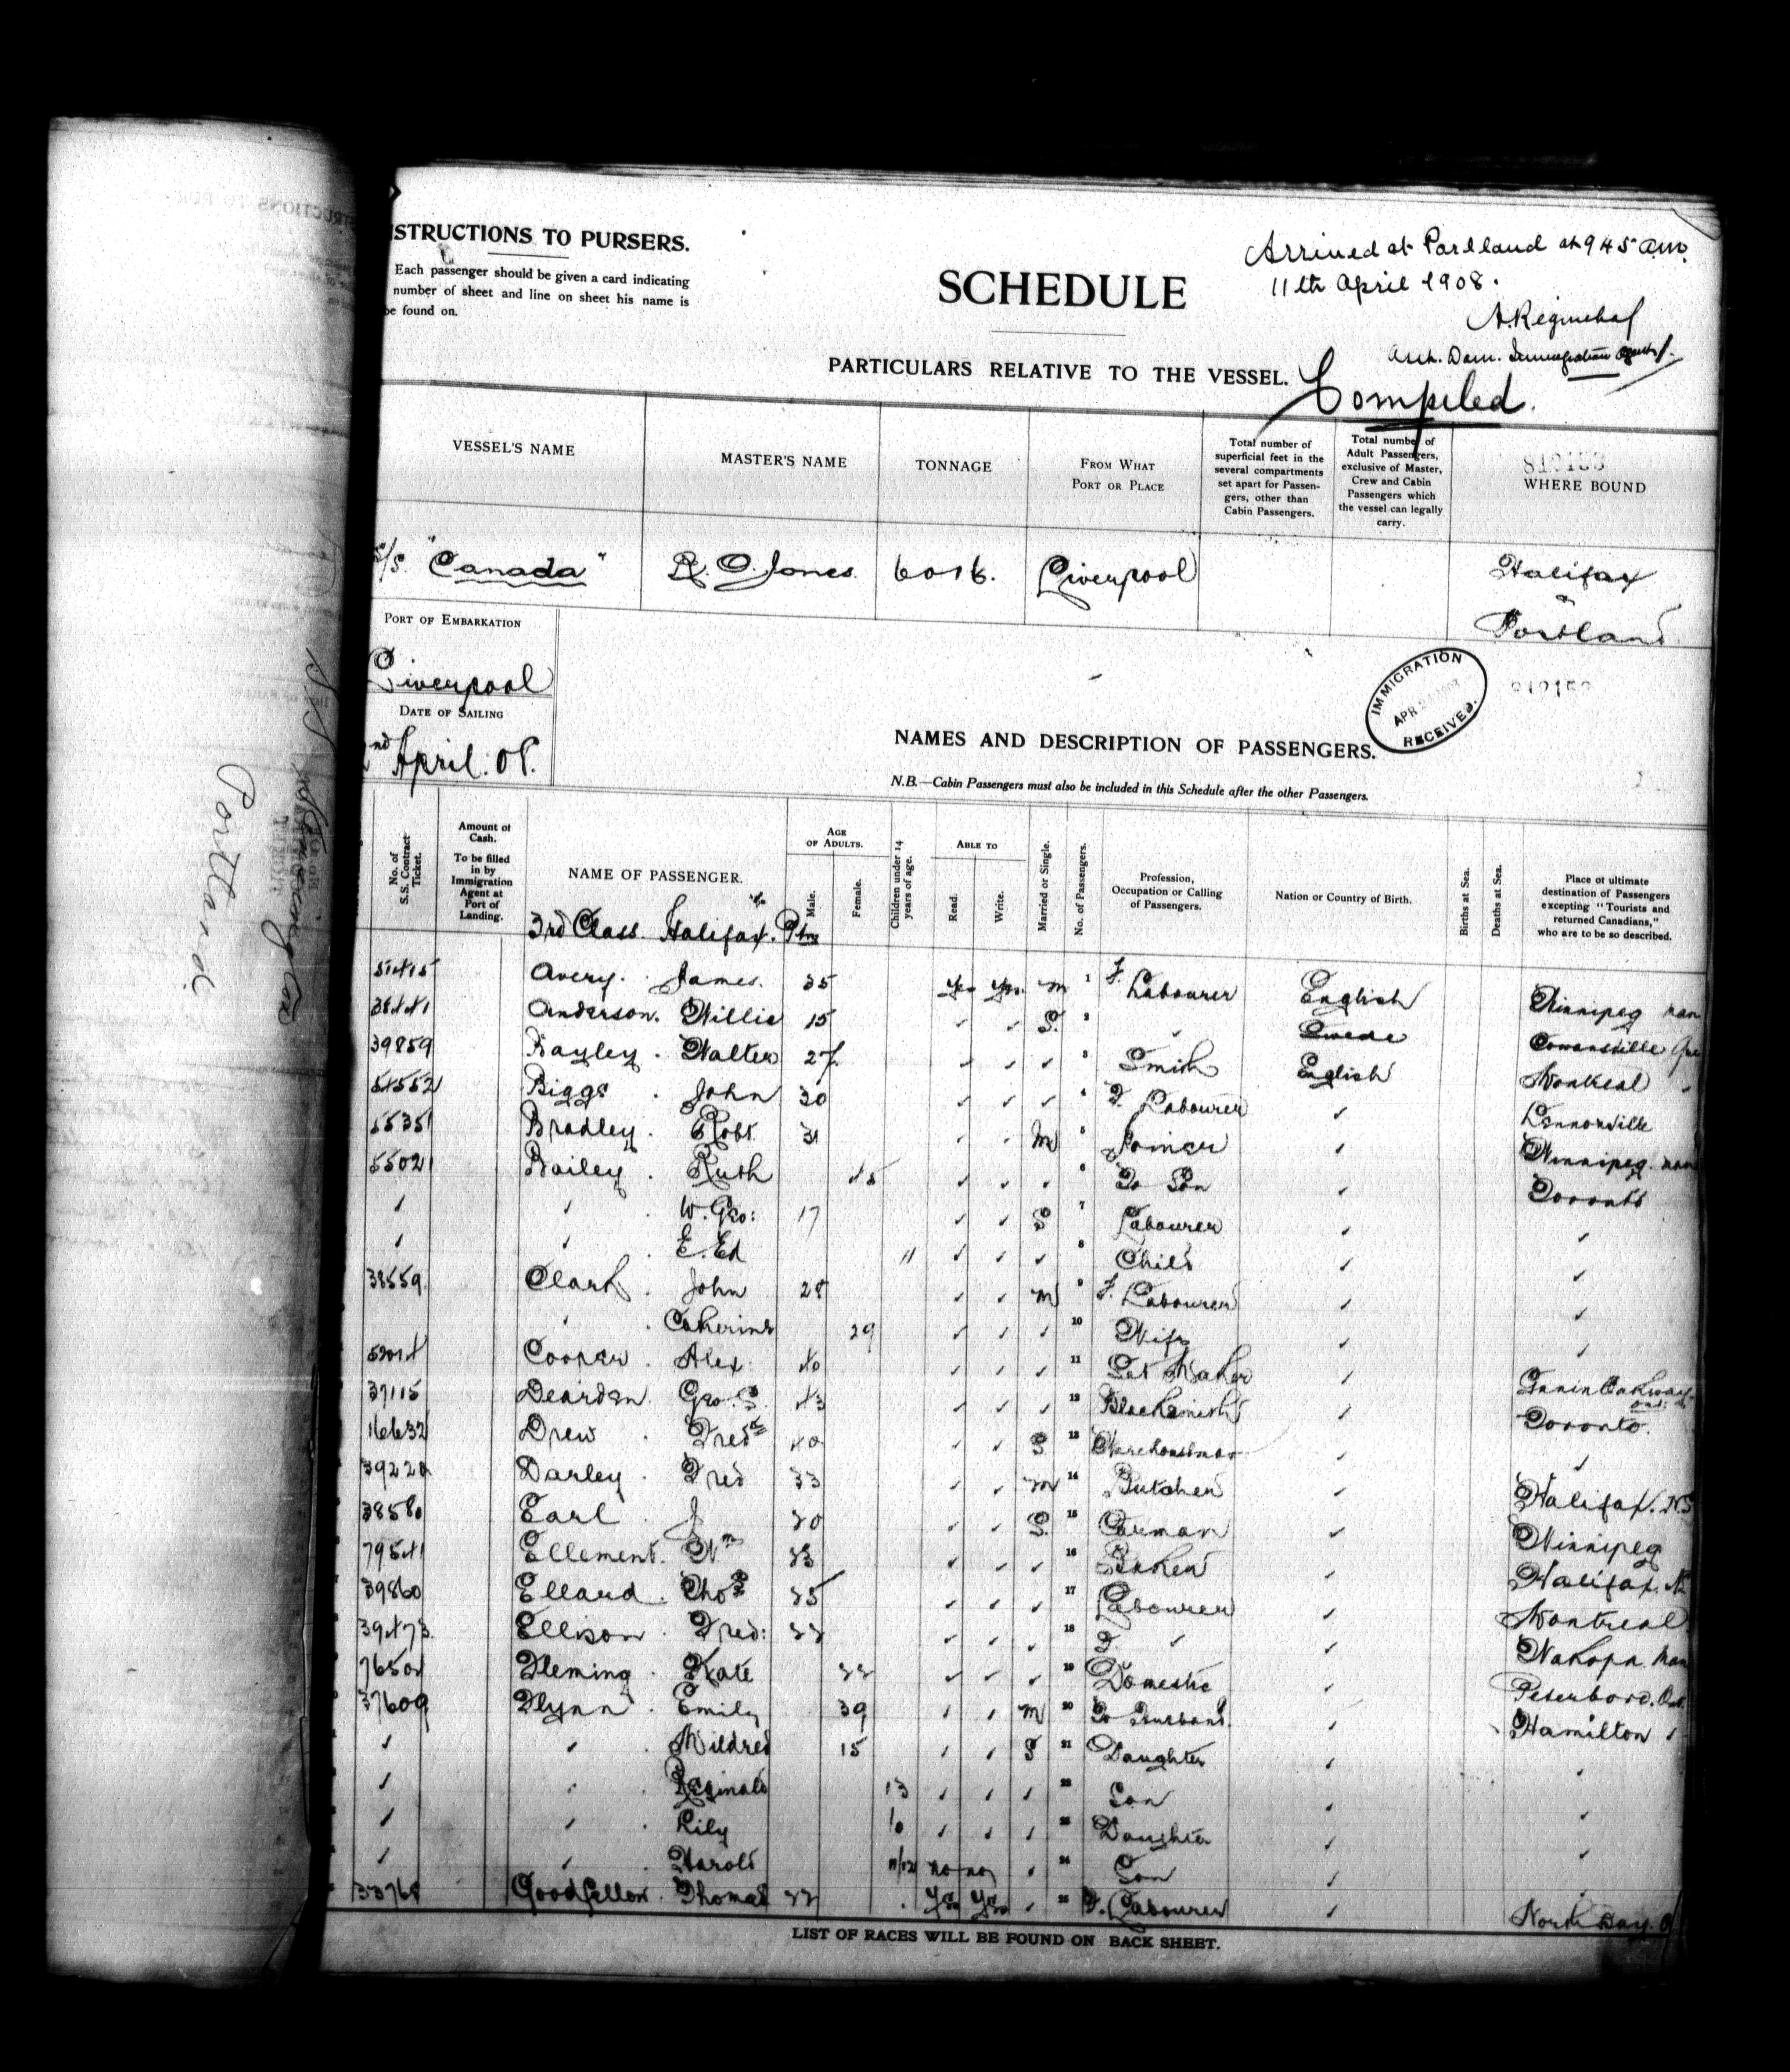 INSTRUCTIONS TO PURSERS.
Each passenger should be given a card indicating
number of sheet and line on sheet his name is
be found on.
SCHEDULE
Arrived at Portland at 9 45 a.m.
11th April 1908.
Compiled.
PARTICULARS RELATIVE TO THE VESSEL.
VESSEL'S NAME
MASTER'S NAME
TONNAGE
FROM WHAT PORT OR PLACE
Total number of superficial feet in the several compartments set apart for Passengers, other than Cabin Passengers.
Total number of Adult Passengers, exclusive of Master, Crew and Cabin Passengers which the vessel can legally carry.
WHERE BOUND
S/S. "Canada" R. O. Jones. 6016. Liverpool Halifax & Portland
PORT OF EMBARKATION
Liverpool
DATE OF SAILING
2nd April. 08.
IMMIGRATION
RECEIVED.
NAMES AND DESCRIPTION OF PASSENGERS.
N.B.—Cabin Passengers must also be included in this Schedule after the other Passengers.
No. of S.S. Contract Ticket.
Amount of Cash. To be filled in by Immigration Agent at Port of Landing.
NAME OF PASSENGER.
AGE OF ADULTS.
Male.
Female.
Children under 14 years of age.
ABLE TO
Read.
Write.
Married or Single.
No. of Passengers.
Profession, Occupation or Calling of Passengers.
Nation or Country of Birth.
Births at Sea.
Deaths at Sea.
Place of ultimate destination of Passengers excepting "Tourists and returned Canadians," who are to be so described.
3rd Class. Halifax.
Avery. James. 35 Yes Yes M 1 F. Labourer English Winnipeg Man
38441 Anderson. Willie 15 ✓ ✓ S. 2 ✓ Swede Cowansville Que
39859 Bayley. Walter 27 ✓ ✓ ✓ 3 Smith English Montreal
54552 Biggs. John 30 ✓ ✓ ✓ 4 F. Labourer ✓ Lennoxville
55351 Bradley. Robt. 31 M 5 Joiner ✓ Winnipeg. Man
55021 Bailey. Ruth 45 ✓ ✓ ✓ 6 To Son ✓ Toronto
✓ ✓ W. Geo: 17 ✓ ✓ S 7 Labourer ✓ ✓
✓ ✓ E. Ed 11 ✓ ✓ ✓ 8 Child ✓ ✓
38559 Clark. John 28 ✓ ✓ M 9 F. Labourer ✓ ✓
✓ Catherine 29 ✓ ✓ ✓ 10 Wife ✓ ✓
Cooper. Alex. 40 ✓ ✓ ✓ 11 ✓
37115 Dearden. Geo. S. 43 ✓ ✓ ✓ 12 Blacksmith ✓ Toronto.
16632 Drew. Fredk 40 ✓ ✓ S 13 Warehouseman ✓ ✓
Darley. Fred 33 ✓ ✓ M 14 Butcher ✓ Halifax. N.S
38580 Earl. J 20 ✓ ✓ S. 15 Carman ✓ Winnipeg
79541 Ellement. Wm 23 ✓ ✓ ✓ 16 Baker ✓ Halifax. N
39860 Ellard. Thos 25 ✓ ✓ ✓ 17 Labourer ✓ Montreal
39473. Ellison. Fred: 22 ✓ ✓ ✓ 18 F. ✓ ✓ Man
Fleming. Kate 22 ✓ ✓ ✓ 19 Domestic ✓ Peterboro. Ont.
37609 Flynn. Emily 39 ✓ ✓ M 20 To Husband. ✓ Hamilton
✓ ✓ Mildred 15 ✓ ✓ S 21 Daughter ✓
✓ ✓ Reginald 13 ✓ ✓ ✓ 22 Son ✓
✓ ✓ Lily 10 ✓ ✓ ✓ 23 Daughter ✓
✓ ✓ Harold 11/12 no no ✓ 24 Son ✓
33768 Goodfellow. Thomas 22 Yes Yes ✓ 25 F. Labourer ✓ North Bay. O
LIST OF RACES WILL BE FOUND ON BACK SHEET.
Portland